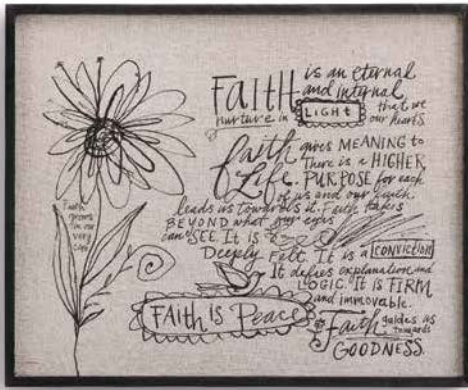 FAITH is an eternal
and internal
LIGHT that we
nurture in our hearts
faith gives MEANING to
Life. There is a HIGHER
PURPOSE for each
of us and our faith
leads us towards it. Faith takes
BEYOND what our eyes
can SEE. It is
Deeply Felt. It is a CONVICTION
It defies explanation and
LOGIC. It is FIRM
and immovable.
FAITH IS Peace
Faith guides us
towards
GOODNESS.
Faith
grows
in our
very